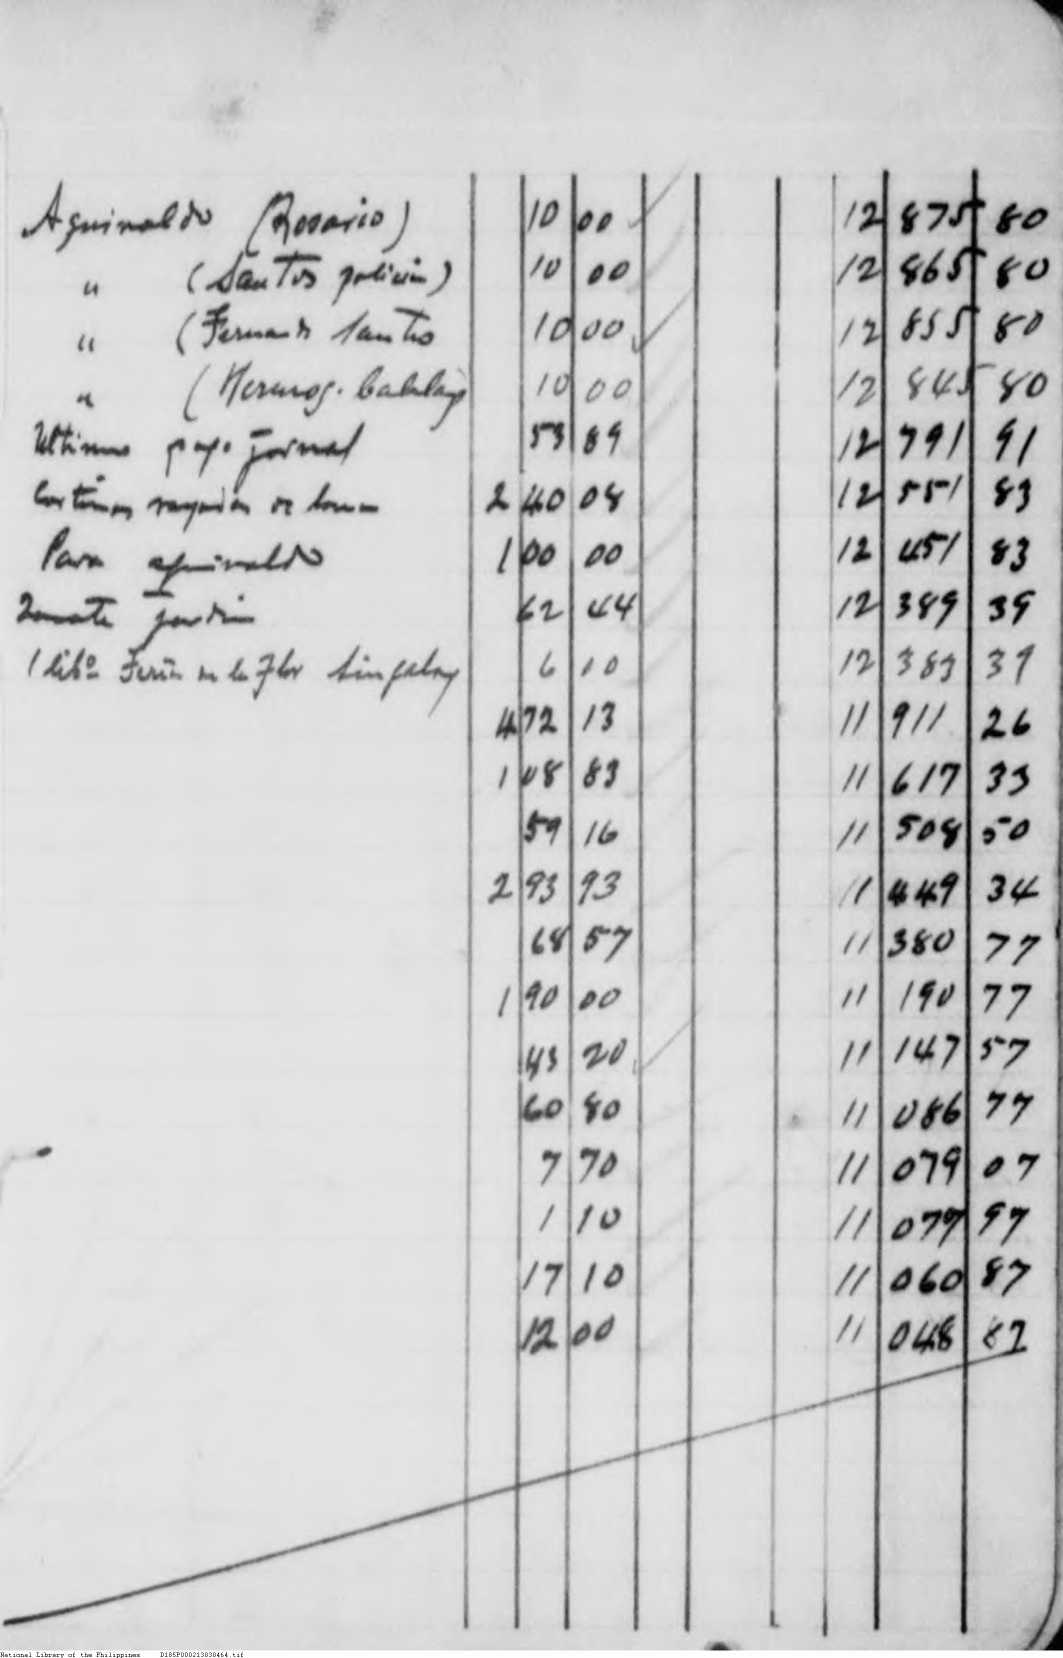 Aguinaldo (Rosario) 10 00 12 875 80
" (Santos policia) 10 00 12 865 80
" (Fernando Santos 10 00 12 855 80
" (Hermog. 10 00 12 845 80
Ultimo pago jornal 53 89 12 791 91
Cortinas 2 40 08 12 551 83
Para aguinaldo 1 00 00 12 451 83
62 44 12 389 39
1 lib° Feria de la Flor Singalong 6 10 12 383 39
4 72 13 11 911 26
1 08 83 11 617 33
59 16 11 508 50
2 93 93 11 449 34
68 57 11 380 77
1 90 00 11 190 77
43 20 11 147 57
60 80 11 086 77
7 70 11 079 07
1 10 11 077 97
17 10 11 060 87
12 00 11 048 87
National Library of the Philippines D185P000213030464.tif